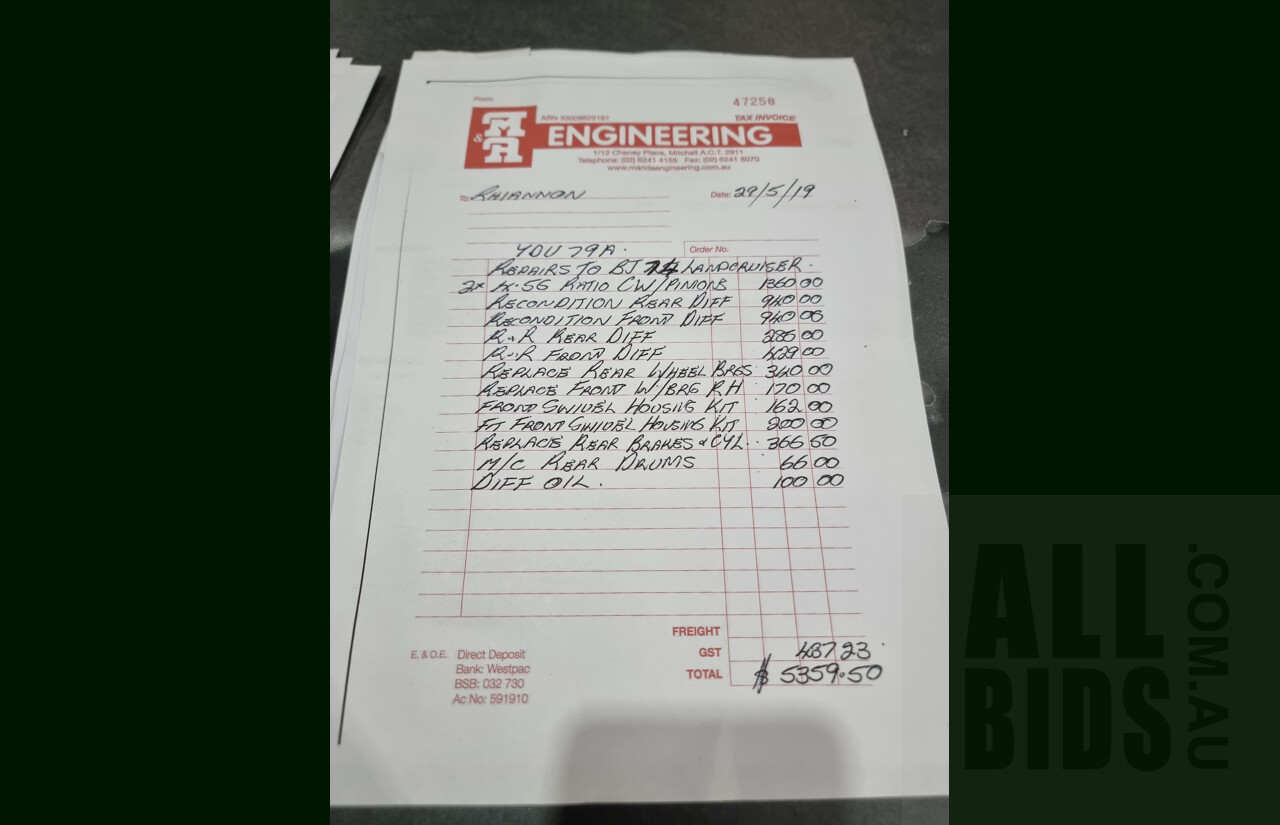 From:
47258
ABN 53008625181
TAX INVOICE
M & A ENGINEERING
1/12 Cheney Place, Mitchell A.C.T. 2911
Telephone: (02) 6241 4155 Fax: (02) 6241 8070
www.mandaengineering.com.au
To: RHIANNON
Date: 29/5/19
YDU 79A.
Order No.
REPAIRS TO BJ 74 LANDCRUISER.
2x 4.56 RATIO CW/PINIONS 1360 00
RECONDITION REAR DIFF 940 00
RECONDITION FRONT DIFF 940 00
R+R REAR DIFF 286 00
R+R FRONT DIFF 429 00
REPLACE REAR WHEEL BRGS 340 00
REPLACE FRONT W/BRG RH 170 00
FRONT SWIVEL HOUSING KIT 162 00
FIT FRONT SWIVEL HOUSING KIT 200 00
REPLACE REAR BRAKES & CYL. 366 50
M/C REAR DRUMS 66 00
DIFF OIL. 100 00
FREIGHT
GST 487 23
TOTAL $ 5359.50
E. & O.E. Direct Deposit
Bank: Westpac
BSB: 032 730
Ac No: 591910
ALL
BIDS
.COM.AU